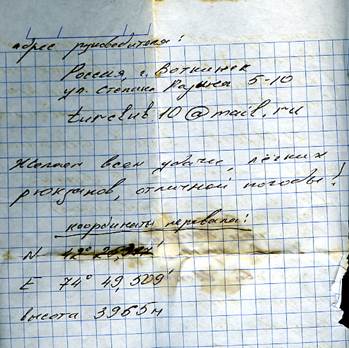 адрес руководителя:
Россия, г. Воткинск
ул. Степана Разина 5-10
turclub10@mail.ru
Желаем всем удачи, лёгких
рюкзаков, отличной погоды!
координаты перевала:
N 42°
E 74° 49,509'
высота 3965м